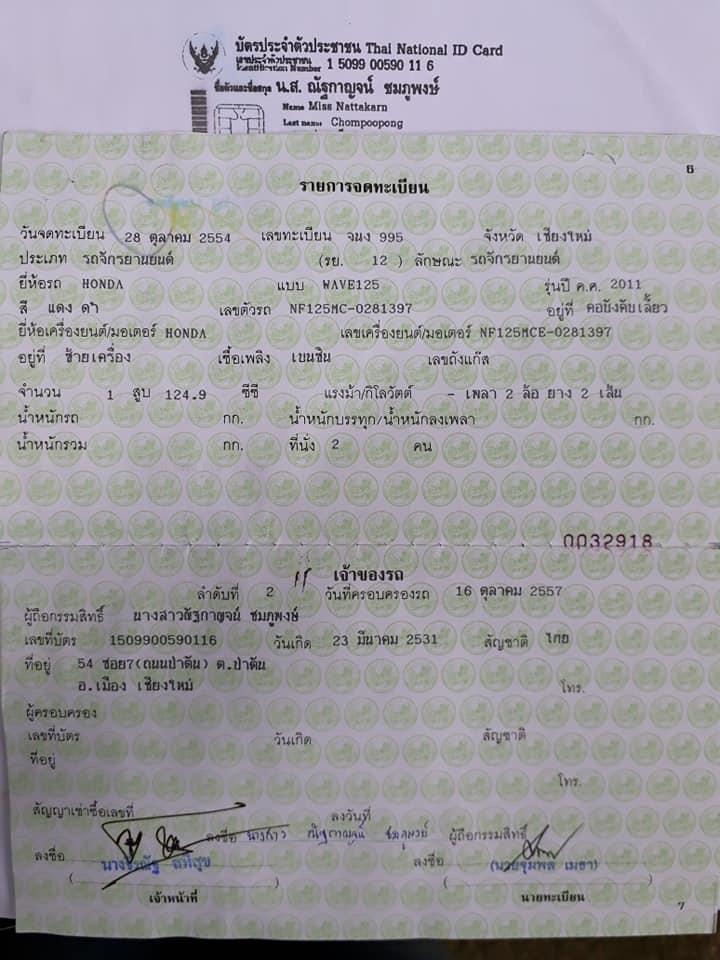 บัตรประจำตัวประชาชน Thai National ID Card
เลขประจำตัวประชาชน
Identification Number 1 5099 00590 11 6
ชื่อตัวและชื่อสกุล น.ส. ณัฐกาญจน์ ชมภูพงษ์
Name Miss Nattakarn
Last name Chompoopong
6
รายการจดทะเบียน
วันจดทะเบียน 28 ตุลาคม 2554 เลขทะเบียน จนง 995 จังหวัด เชียงใหม่
ประเภท รถจักรยานยนต์ (รย. 12 ) ลักษณะ รถจักรยานยนต์
ยี่ห้อรถ HONDA แบบ WAVE125 รุ่นปี ค.ศ. 2011
สี แดง ดำ เลขตัวรถ NF125MC-0281397 อยู่ที่ คอบังคับเลี้ยว
ยี่ห้อเครื่องยนต์/มอเตอร์ HONDA เลขเครื่องยนต์/มอเตอร์ NF125MCE-0281397
อยู่ที่ ซ้ายเครื่อง เชื้อเพลิง เบนซิน เลขถังแก๊ส
จำนวน 1 สูบ 124.9 ซีซี แรงม้า/กิโลวัตต์ - เพลา 2 ล้อ ยาง 2 เส้น
น้ำหนักรถ กก. น้ำหนักบรรทุก/น้ำหนักลงเพลา กก.
น้ำหนักรวม กก. ที่นั่ง 2 คน
0032918
เจ้าของรถ
ลำดับที่ 2 วันที่ครอบครองรถ 16 ตุลาคม 2557
ผู้ถือกรรมสิทธิ์ นางสาวณัฐกาญจน์ ชมภูพงษ์
เลขที่บัตร 1509900590116 วันเกิด 23 มีนาคม 2531 สัญชาติ ไทย
ที่อยู่ 54 ซอย7(ถนนป่าตัน) ต.ป่าตัน
อ.เมือง เชียงใหม่ โทร.
ผู้ครอบครอง
เลขที่บัตร วันเกิด สัญชาติ
ที่อยู่
โทร.
สัญญาเช่าซื้อเลขที่ ลงวันที่
ลงชื่อ นางสาว ณัฐกาญจน์ ชมภูพงษ์ ผู้ถือกรรมสิทธิ์
ลงชื่อ ลงชื่อ
(นายจุมพล เมธา)
เจ้าหน้าที่ นายทะเบียน
7